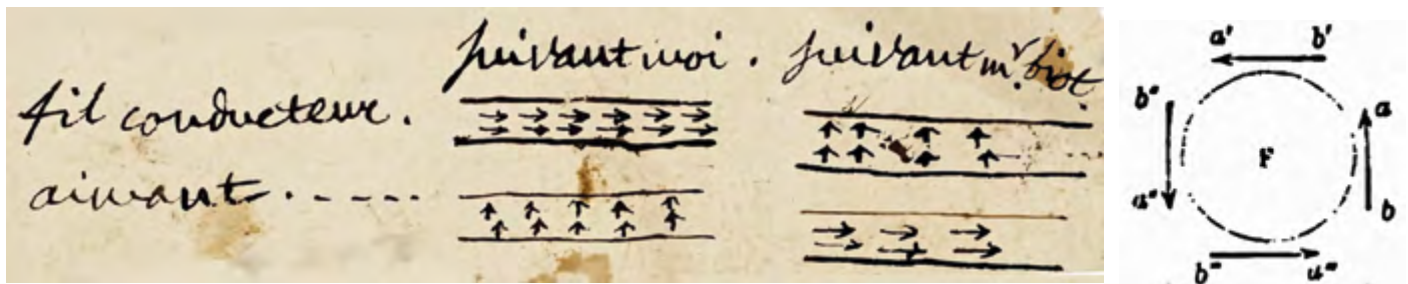 suivant moi. suivant mr biot.
fil conducteur.
aimant. - - - -
a' b'
b" a
F
a" b
b''' a'''